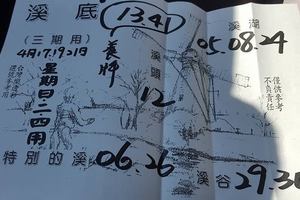 溪底
1341
溪湖
05.08.24
(三期用)
4月17.19.21日
星期日二四用
養牌
溪頭
12
僅供參考
不負責任
特別的溪
06.26
溪谷
29.30